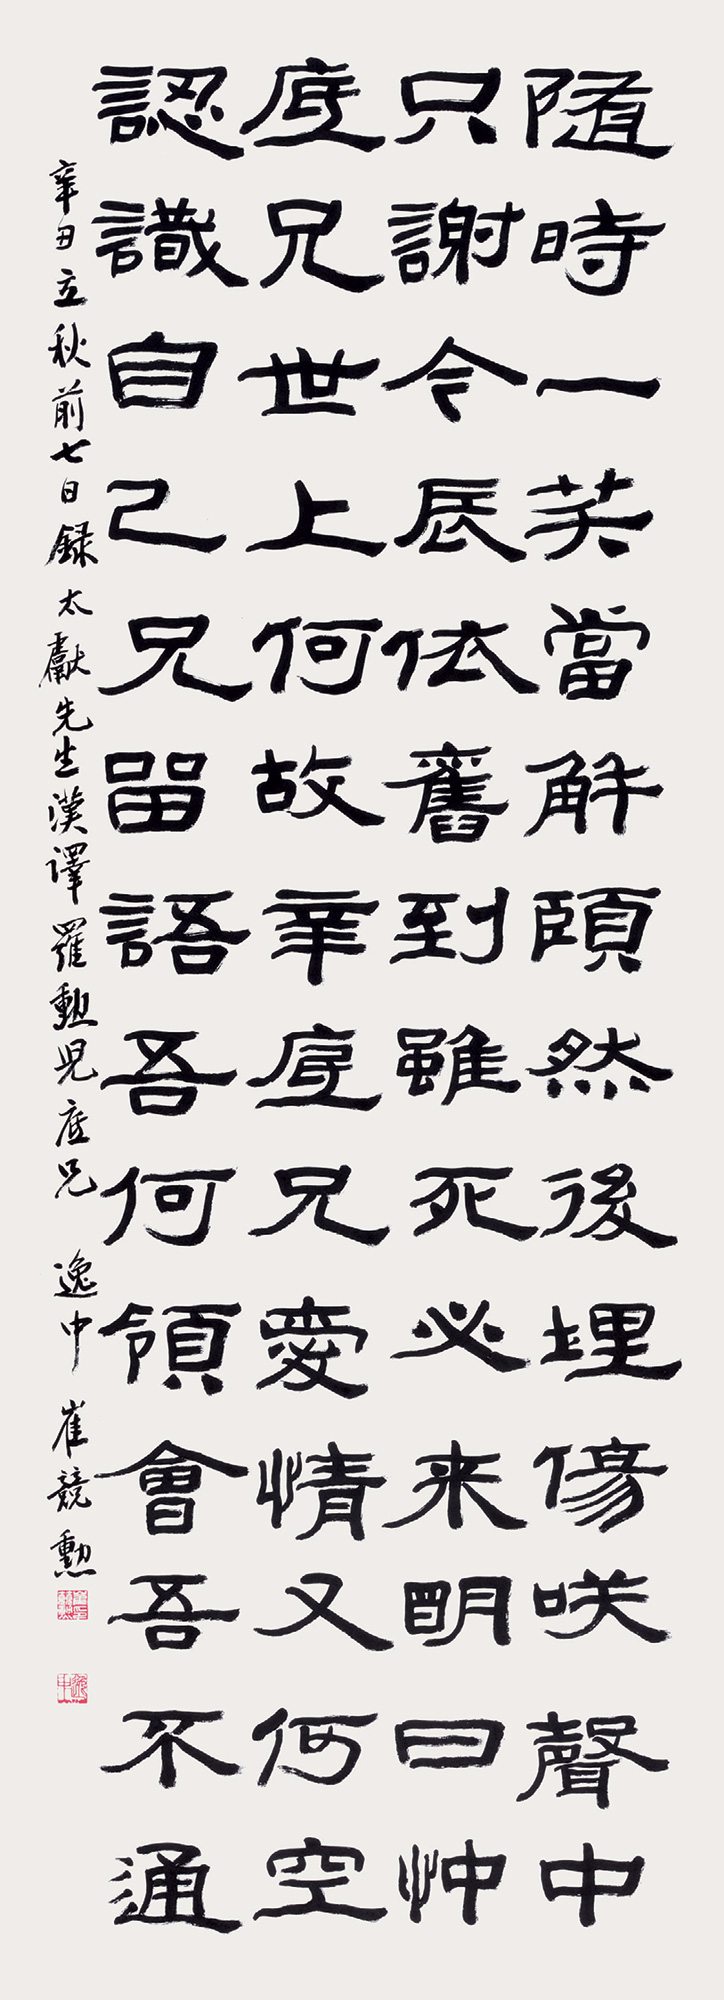 隨時一笑當解頤然後埋傷咲聲中
只謝今辰依舊到雖死必来明日忡
底兄世上何故辛底兄愛情又何空
認識自己兄留語吾何領會吾不通
辛丑立秋前七日録太獻先生漢譯羅勳児底兄 逸中 崔競勳
逸中